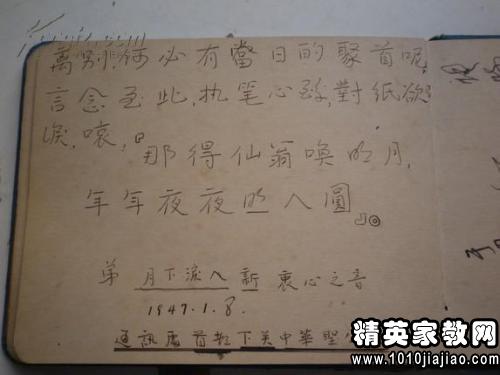 離別,何必有當日的聚首呢
言念至此,执笔心酸,對紙欲
淚,噫,『那得仙翁喚明月,
年年夜夜照人圓』◎
弟 月下淚人 新 衷心之音
1947.1.8.
通訊處首都下关中華聖
精英家教网
www.1010jiajiao.com